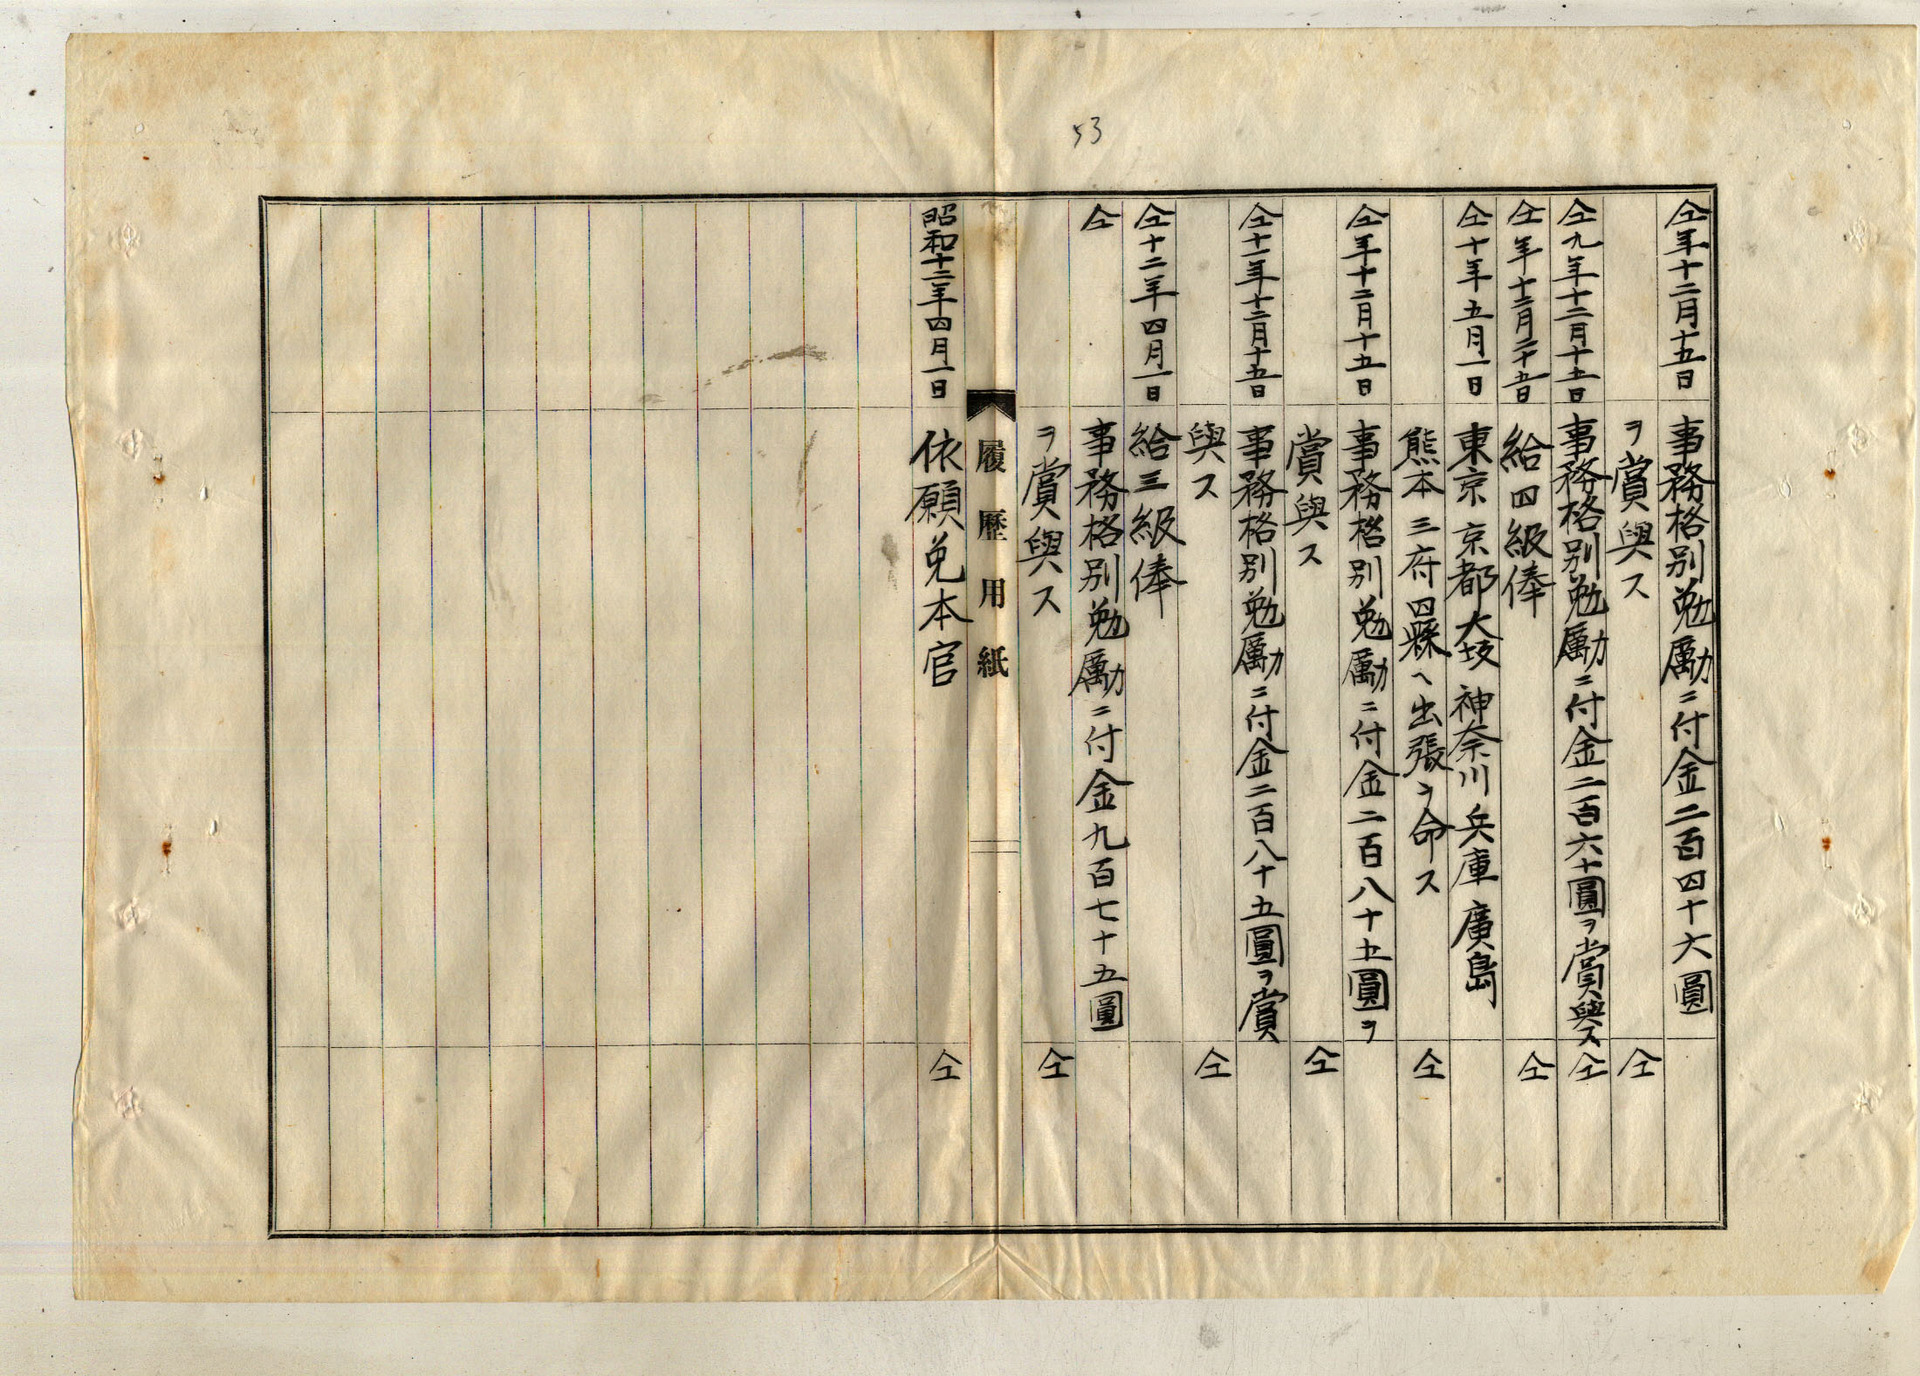 53
仝年十二月十五日 事務格別勉勵ニ付金二百四十六圓
ヲ賞與ス 仝
仝九年十二月十五日 事務格別勉勵ニ付金二百六十圓ヲ賞與ス 仝
仝年十二月二十五日 給四級俸 仝
仝十年五月一日 東京 京都 大坂 神奈川 兵庫 廣島
熊本 三府四縣ヘ出張ヲ命ス 仝
仝年十二月十五日 事務格別勉勵ニ付金二百八十五圓ヲ
賞與ス 仝
仝十一年十二月十五日 事務格別勉勵ニ付金二百八十五圓ヲ賞
與ス 仝
仝十二年四月一日 給三級俸
仝 事務格別勉勵ニ付金九百七十五圓
ヲ賞與ス 仝
履歷用紙
昭和十二年四月一日 依願免本官 仝